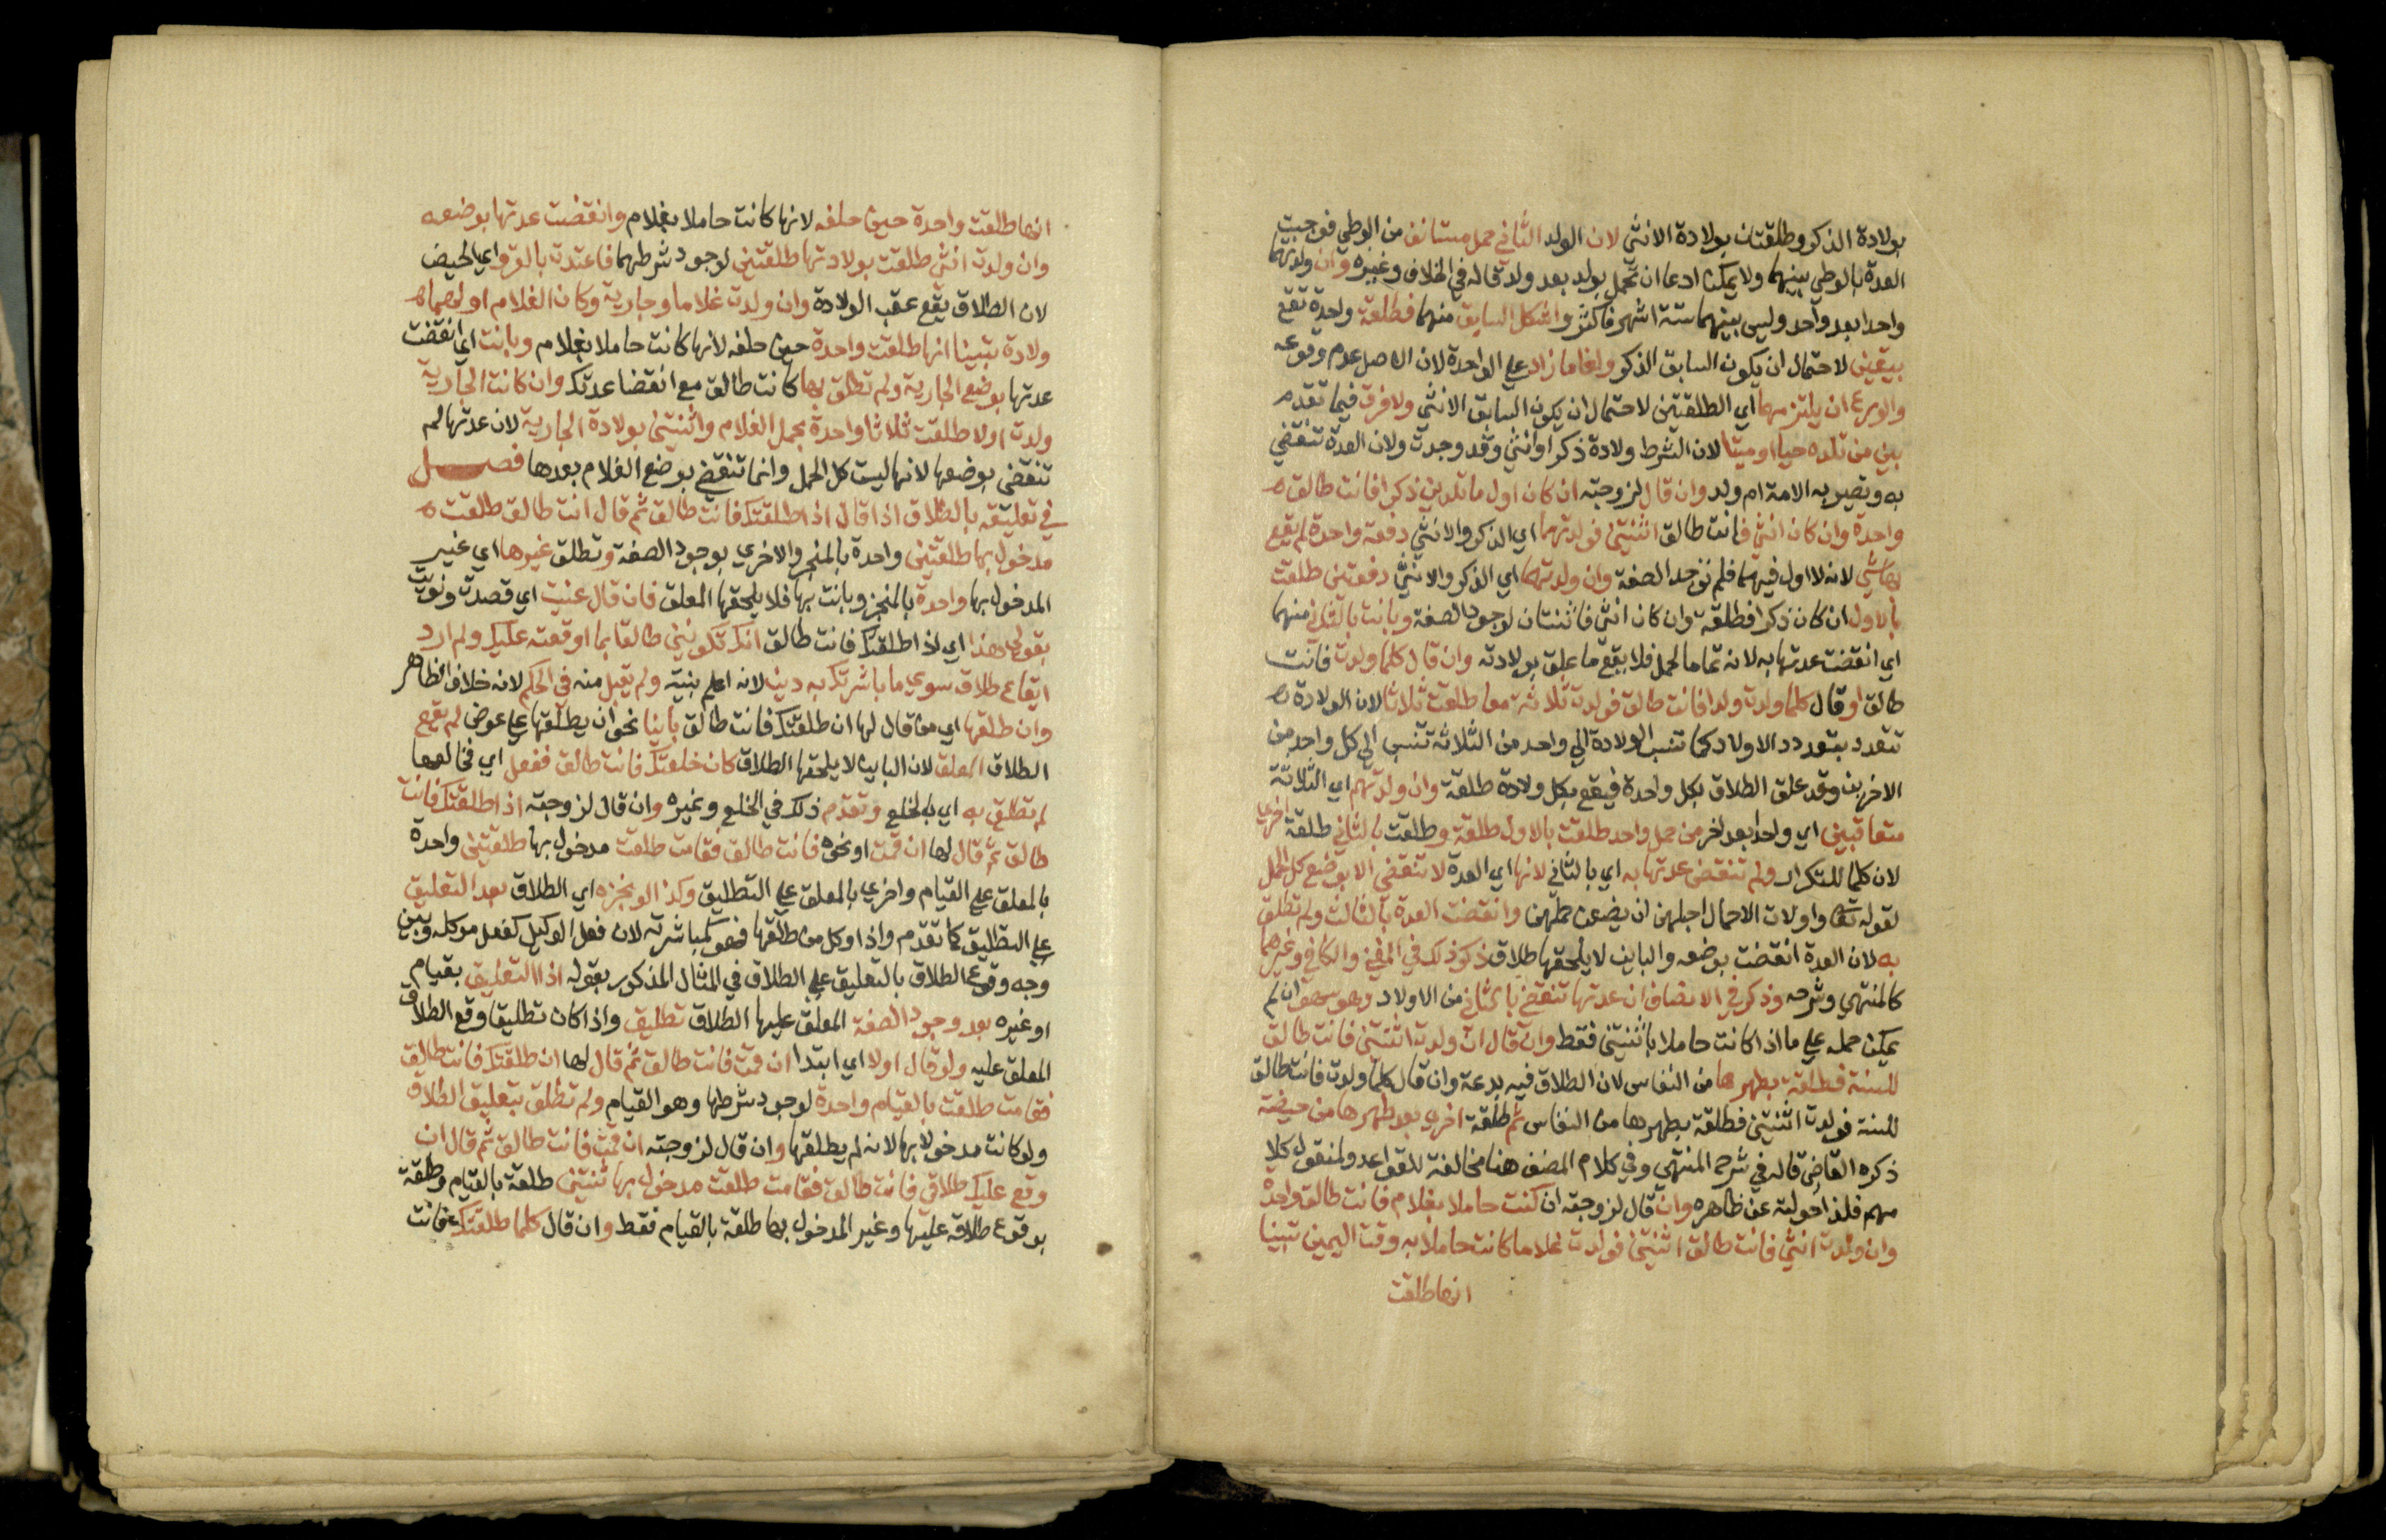 بولادة الذكر وطلقتان بولادة الانثي لان الولد الثاني حمل مستانف من الوطي فوجبت
العدة بالوطي بينهما ولا يمكن ادعا ان تحمل بولد بعد ولد قاله في الخلاف وغيره وان ولدتهما
واحدا بعد واحد وليس بينهما ستة اشهر فاكثر واشكل السابق منهما فطلقة واحدة تقع
بيقين لاحتمال ان يكون السابق الذكر ولغا ما زاد علي الواحدة لان الاصل عدم وقوعه
والورع ان يلتزمهما اي الطلقتين لاحتمال ان يكون السابق الانثي ولا فرق فيما تقدم
بين من تلده حيا او ميتا لان الشرط ولادة ذكر او انثي وقد وجدت ولان العدة تنقضي
به وتصير به الامة ام ولد وان قال لزوجته ان كان اول ما تلدين ذكرا فانت طالق
واحدة وان كان انثي فانت طالق اثنتين فولدتهما اي الذكر والانثي دفعة واحدة لم يقع
بها شي لانه لا اول فيهما فلم توجد الصفة وان ولدتهما اي الذكر والانثي دفعتين طلقت
بالاول ان كان ذكرا فطلقة وان كان انثي فاثنتان لوجود الصفة وبانت بالثاني منهما
اي انقضت عدتها به لانه تمام الحمل فلا يقع ما علق بولادته وان قال كلما ولدت فانت
طالق او قال كلما ولدت ولدا فانت طالق فولدت ثلاثة معا طلقت ثلاثا لان الولادة
تتعدد بتعدد الاولاد كما تنسب الولادة الي واحد من الثلاثة تنسب الي كل واحد من
الاخرين وقد علق الطلاق بكل واحدة فيقع بكل ولادة طلقة وان ولدتهم اي الثلاثة
متعاقبين اي واحدا بعد اخر من حمل واحد طلقت بالاول طلقة وطلقت بالثاني طلقة اخري
لان كلما للتكرار ولم تنقض عدتها به اي بالثاني لانها اي العدة لا تنقضي الا بوضع كل الحمل
لقوله تعا واولات الاحمال اجلهن ان يضعن حملهن وانقضت العدة بالثالث ولم تطلق
به لان العدة انقضت بوضعه والباين لا يلحقها طلاق ذكر ذلك في المغني والكافي وغيرهما
كالمنتهي وشرحه وذكر في الانصاف ان عدتها تنقضي بالثاني من الاولاد وهو سهو ان لم
يمكن حمله علي ما اذا كانت حاملا باثنتين فقط وان قال ان ولدت اثنتين فانت طالق
للسنة فطلقة بطهرها من النفاس لان الطلاق فيه بدعة وان قال كلما ولدت فانت طالق
للسنة فولدت اثنتين فطلقة بطهرها من النفاس ثم طلقة اخري بعد طهرها من حيضة
ذكره القاضي قاله في شرح المنتهي وفي كلام المصنف هنا مخالفة للقواعد ولمنقول كلا
مهم فلذا حولته عن ظاهره وان قال لزوجته ان كنت حاملا بغلام فانت طالق واحدة
وان ولدت انثي فانت طالق اثنتين فولدت غلاما كانت حاملا به وقت اليمين تبينا
انها طلقت
انها طلقت واحدة حين حلفه لانها كانت حاملا بغلام وانقضت عدتها بوضعه
وان ولدت انثي طلقت بولادتها طلقتين لوجود شرطهما فاعتدت بالقرو اي الحيض
لان الطلاق يقع عقب الولادة وان ولدت غلاما وجارية وكان الغلام اولهما
ولادة تبينا انها طلقت واحدة حين حلفه لانها كانت حاملا بغلام وبانت اي انقضت
عدتها بوضع الجارية ولم تطلق بها كانت طالق مع انقضا عدتك وان كانت الجارية
ولدت اولا طلقت ثلاثا واحدة بحمل الغلام واثنتين بولادة الجارية لان عدتها لم
تنقض بوضعها لانها ليست كل الحمل وانما تنقضي بوضع الغلام بعدها فصل
في تعليقه بالطلاق اذا قال اذا طلقتك فانت طالق ثم قال انت طالق طلقت
مدخول بها طلقتين واحدة بالمنجز والاخري بوجود الصفة وتطلق غيرها اي غير
المدخول بها واحدة بالمنجز وبانت بها فلا يلحقها المعلق فان قال عنيت اي قصدت ونويت
بقولي هذا اي اذا طلقتك فانت طالق انك تكونين طالقا بما اوقعته عليك ولم ارد
ايقاع طلاق سوي ما باشرتك به دين لانه اعلم بنيته ولم يقبل منه في الحكم لانه خلاف الظاهر
وان طلقها اي من قال لها ان طلقتك فانت طالق باينا نحو ان يطلقها علي عوض لم يقع
الطلاق المعلق لان الباين لا يلحقها الطلاق كان خلعتك فانت طالق ففعل اي خالعها
لم تطلق به اي بالخلع وتقدم ذلك في الخلع وغيره وان قال لزوجته اذا طلقتك فانت
طالق ثم قال لها ان قمت او نحوه فانت طالق فقامت طلقت مدخول بها طلقتين واحدة
بالمعلق علي القيام واخري بالمعلق علي التطليق وكذا لو نجزه اي الطلاق بعد التعليق
علي التطليق كما تقدم واذا وكل من طلقها فهو كمباشرته لان فعل الوكيل كفعل موكله وبين
وجه وقوع الطلاق بالتعليق علي الطلاق في المثال المذكور بقوله اذا التعليق بقيام
او غيره بعد وجود الصفة المعلق عليها الطلاق تطليق واذا كان تطليقا وقع الطلاق
المعلق عليه ولو قال اولا اي ابتدا ان قمت فانت طالق ثم قال لها ان طلقتك فانت طالق
فقامت طلقت بالقيام واحدة لوجود شرطها وهو القيام ولم تطلق بتعليق الطلاق
ولو كانت مدخولا بها لانه لم يطلقها وان قال لزوجته ان قمت فانت طالق ثم قال ان
وقع عليك طلاقي فانت طالق فقامت طلقت مدخول بها ثنتين طلقة بالقيام وطلقة
بوقوع طلاقه عليها وغير المدخول بها طلقة بالقيام فقط وان قال كلما طلقتك فانت